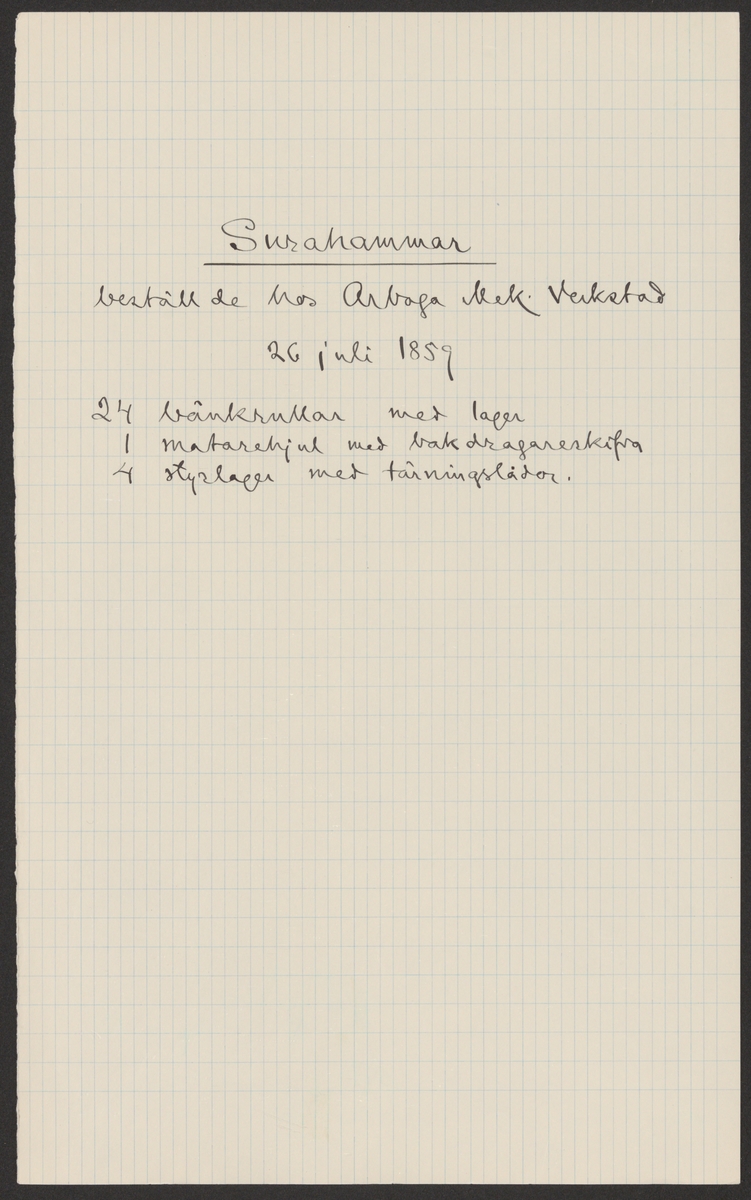 Surahammar
beställde hos Arboga Mek. Verkstad
26 juli 1859
24 bänkrullar med lager
1 matarehjul med bakdragareskifva
4 styrlager med tärningslådor.